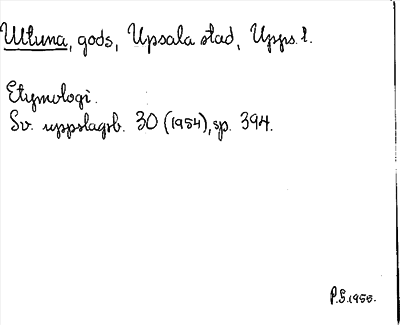 Ultuna, gods, Upsala stad, Upps. l.
Etymologi.
Sv. uppslagsb. 30 (1954), sp. 394.
P.S. 1955.